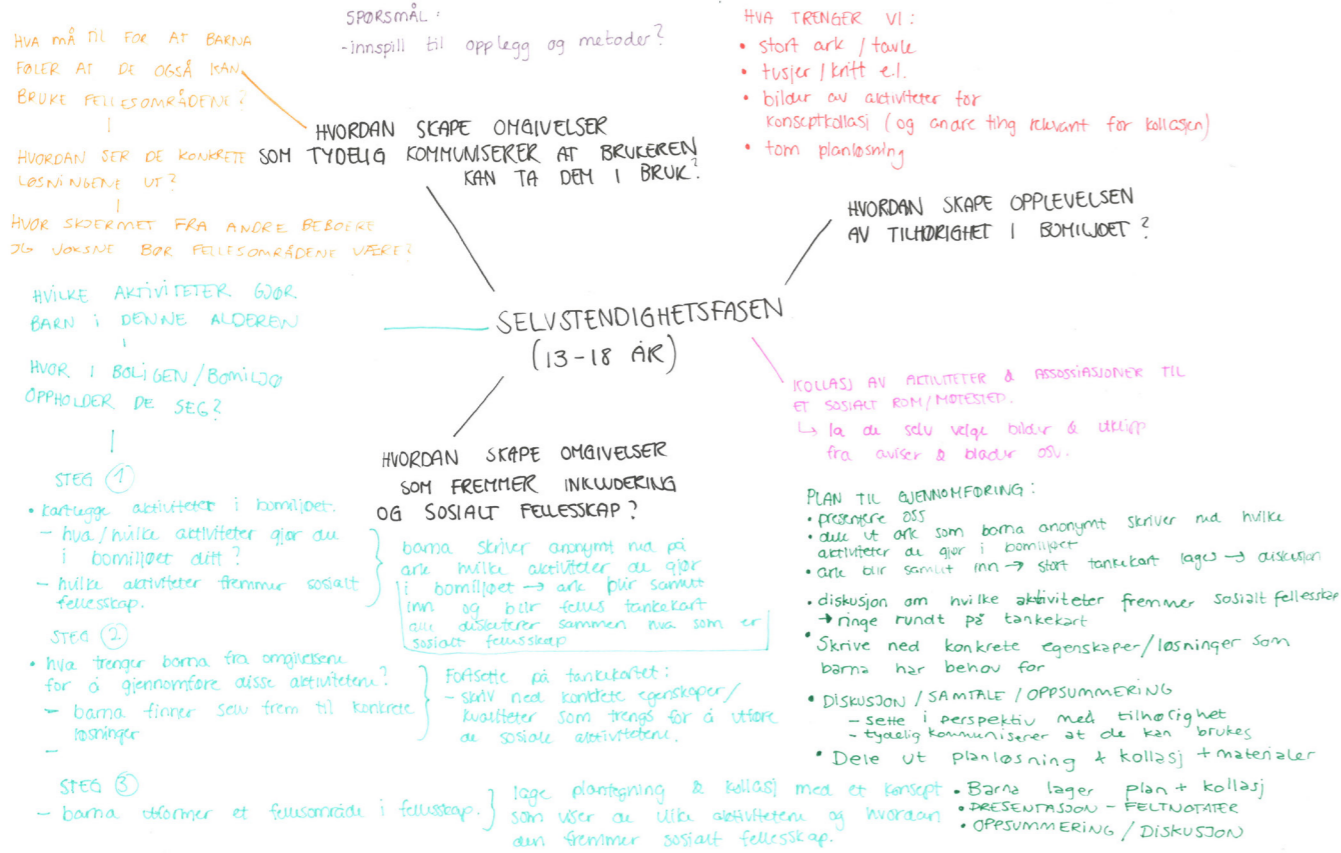 SPØRSMÅL:
-innspill til opplegg og metoder?
HVA TRENGER VI:
• stort ark / tavle
• tusjer / kritt e.l.
• bilder av aktiviteter for
konseptkollasj (og andre ting relevant for kollasjen)
• tom planløsning
HVA MÅ TIL FOR AT BARNA
FØLER AT DE OGSÅ KAN
BRUKE FELLESOMRÅDENE?
HVORDAN SER DE KONKRETE
LØSNINGENE UT?
HVOR SKJERMET FRA ANDRE BEBOERE
OG VOKSNE BØR FELLESOMRÅDENE VÆRE?
HVORDAN SKAPE OMGIVELSER
SOM TYDELIG KOMMUNISERER AT BRUKEREN
KAN TA DEM I BRUK?
HVORDAN SKAPE OPPLEVELSEN
AV TILHØRIGHET I BOMILJØET?
HVILKE AKTIVITETER GJØR
BARN I DENNE ALDEREN
HVOR I BOLIGEN/BOMILJØ
OPPHOLDER DE SEG?
SELVSTENDIGHETSFASEN
(13-18 ÅR)
KOLLASJ AV AKTIVITETER & ASSOSSIASJONER TIL
ET SOSIALT ROM/MØTESTED.
↳ la de selv velge bilder & utklipp
fra aviser & blader osv.
HVORDAN SKAPE OMGIVELSER
SOM FREMMER INKLUDERING
OG SOSIALT FELLESSKAP?
STEG 1
• kartlegge aktiviteter i bomiljøet.
- hva/hvilke aktiviteter gjør du
i bomiljøet ditt?
- hvilke aktiviteter fremmer sosialt
fellesskap.
barna skriver anonymt ned på
ark hvilke aktiviteter de gjør
i bomiljøet → ark blir samlet
inn og blir felles tankekart
alle diskuterer sammen hva som er
sosialt fellesskap
STEG 2
• hva trenger barna fra omgivelsene
for å gjennomføre disse aktivitetene?
- barna finner selv frem til konkrete
løsninger
-
Fortsette på tankekartet:
- skriv ned konkrete egenskaper/
kvaliteter som trengs for å utføre
de sosiale aktivitetene.
STEG 3
- barna utformer et fellesområde i fellesskap.
lage plantegning & kollasj med et konsept
som viser de ulike aktivitetene og hvordan
den fremmer sosialt fellesskap.
PLAN TIL GJENNOMFØRING:
• presentere oss
• dele ut ark som barna anonymt skriver ned hvilke
aktiviteter de gjør i bomiljøet
• ark blir samlet inn → stort tankekart lages → diskusjon
• diskusjon om hvilke aktiviteter fremmer sosialt fellesskap
→ ringe rundt på tankekart
• Skrive ned konkrete egenskaper/løsninger som
barna har behov for
• DISKUSJON / SAMTALE / OPPSUMMERING
- sette i perspektiv med tilhørighet
- tydelig kommuniserer at de kan brukes
• Dele ut planløsning + kollasj + materialer
• Barna lager plan + kollasj
• PRESENTASJON - FELTNOTATER
• OPPSUMMERING / DISKUSJON